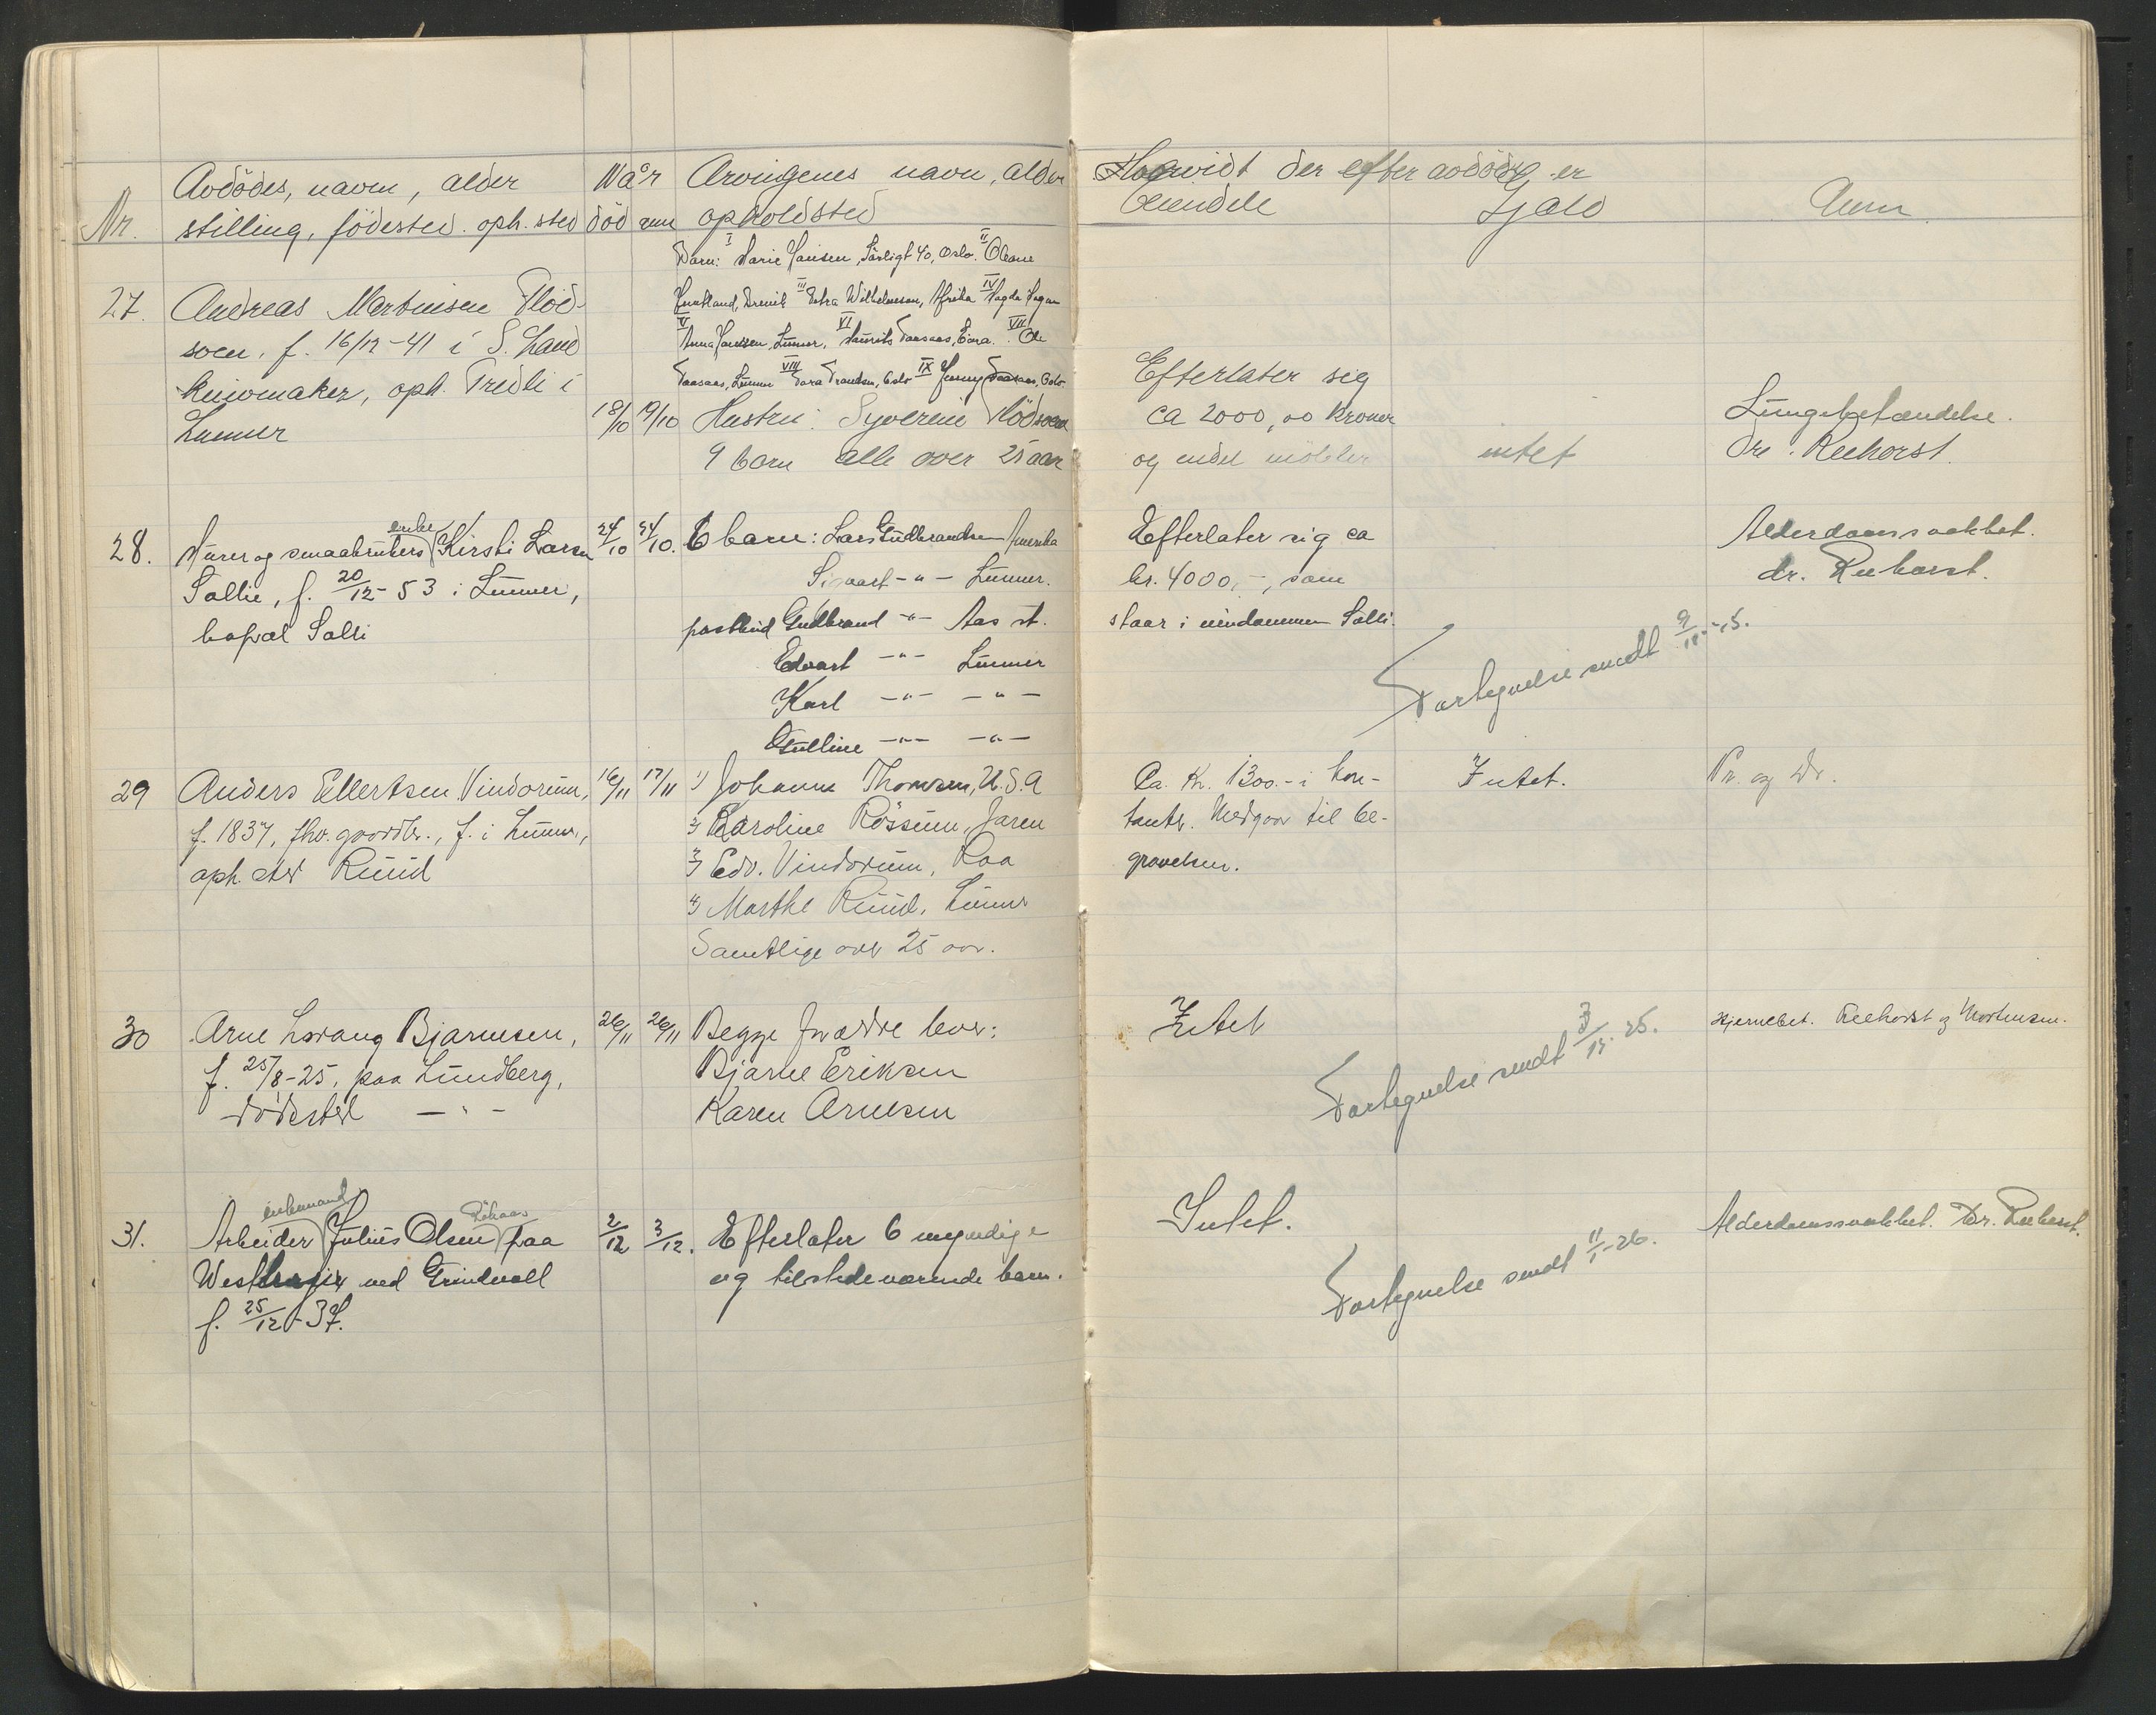 Nr.
Avdödes, navn, alder
stilling, födested. oph. sted
Når
död anm
Arvingenes navn, alder
opholdsted
Hvorvidt der efter avdöde er
Eiendele
Gjæld
Anm.
27.
Andreas Martinsen Flöd-
soen. f. 16/12-41 i S. Land
knivmaker, oph. Tredli i
Lunner
18/10 19/10
Barn: I Marie Hansen, 40, Oslo. II Oleane
III Petra Wilhelmsen, Afrika IV Magda Hagen
V Anna Hansen, Lunner, VI Maurits Taasaas, VII Ole
Taasaas, Lunner VIII Dora Trandsen, Oslo IX Jenny Taasaas, Oslo
Hustru: Syverine Flödsoen
9 barn alle over 25 aar
Efterlater sig
ca 2000,00 kroner
og endel möbler
intet
Lungebetændelse.
Dr. Reehorst.
28.
Murer og smaabrukers enke Kirsti Larsen
Sollie, f. 20/12-53 i Lunner,
bopæl Solli
24/10 24/10.
6 barn: Lars Gudbrandsen Amerika
Sivart -"- Lunner.
postbud Gudbrand -"- Aas st.
Edvart -"- Lunner
Karl -"- -"-
Gulline -"- -"-
Efterlater sig ca
kr. 4000,-, som
staar i eiendommen Solli.
Fortegnelse sendt
Alderdomssvakhet.
dr. Reehorst.
29
Anders Ellertsen Vindorum,
f. 1837, fhv. gaardbr., f. i Lunner,
oph. sted Ruud
16/11 17/11
1) Johanne Thomsen, U.S.A
2) Karoline Rössum, Jaren
3) Edv. Vindorum, Roa
4) Marthe Ruud, Lunner
Samtlige over 25 aar.
Ca. Kr. 1300.- i kon-
tanter. Medgaar til be-
gravelsen.
Intet.
30
Arne Lorang Bjarnesen,
f. 25/8-25, paa Lundberg,
dödssted -"-
26/11 26/11
Begge foreldre lever:
Bjarne Eriksen
Karen Arnesen
Intet
Fortegnelse sendt 3/12.-25.
Hjernebet. Reehorst og Mortensen.
31.
Arbeider enkemand Julius Olsen paa
ved Grindvoll
f. 25/12-37.
2/12 3/12.
Efterlater 6 myndige
og tilstedeværende barn.
Intet.
Fortegnelse sendt 11/1-26.
Alderdomssvakhet. Dr. Reehorst.